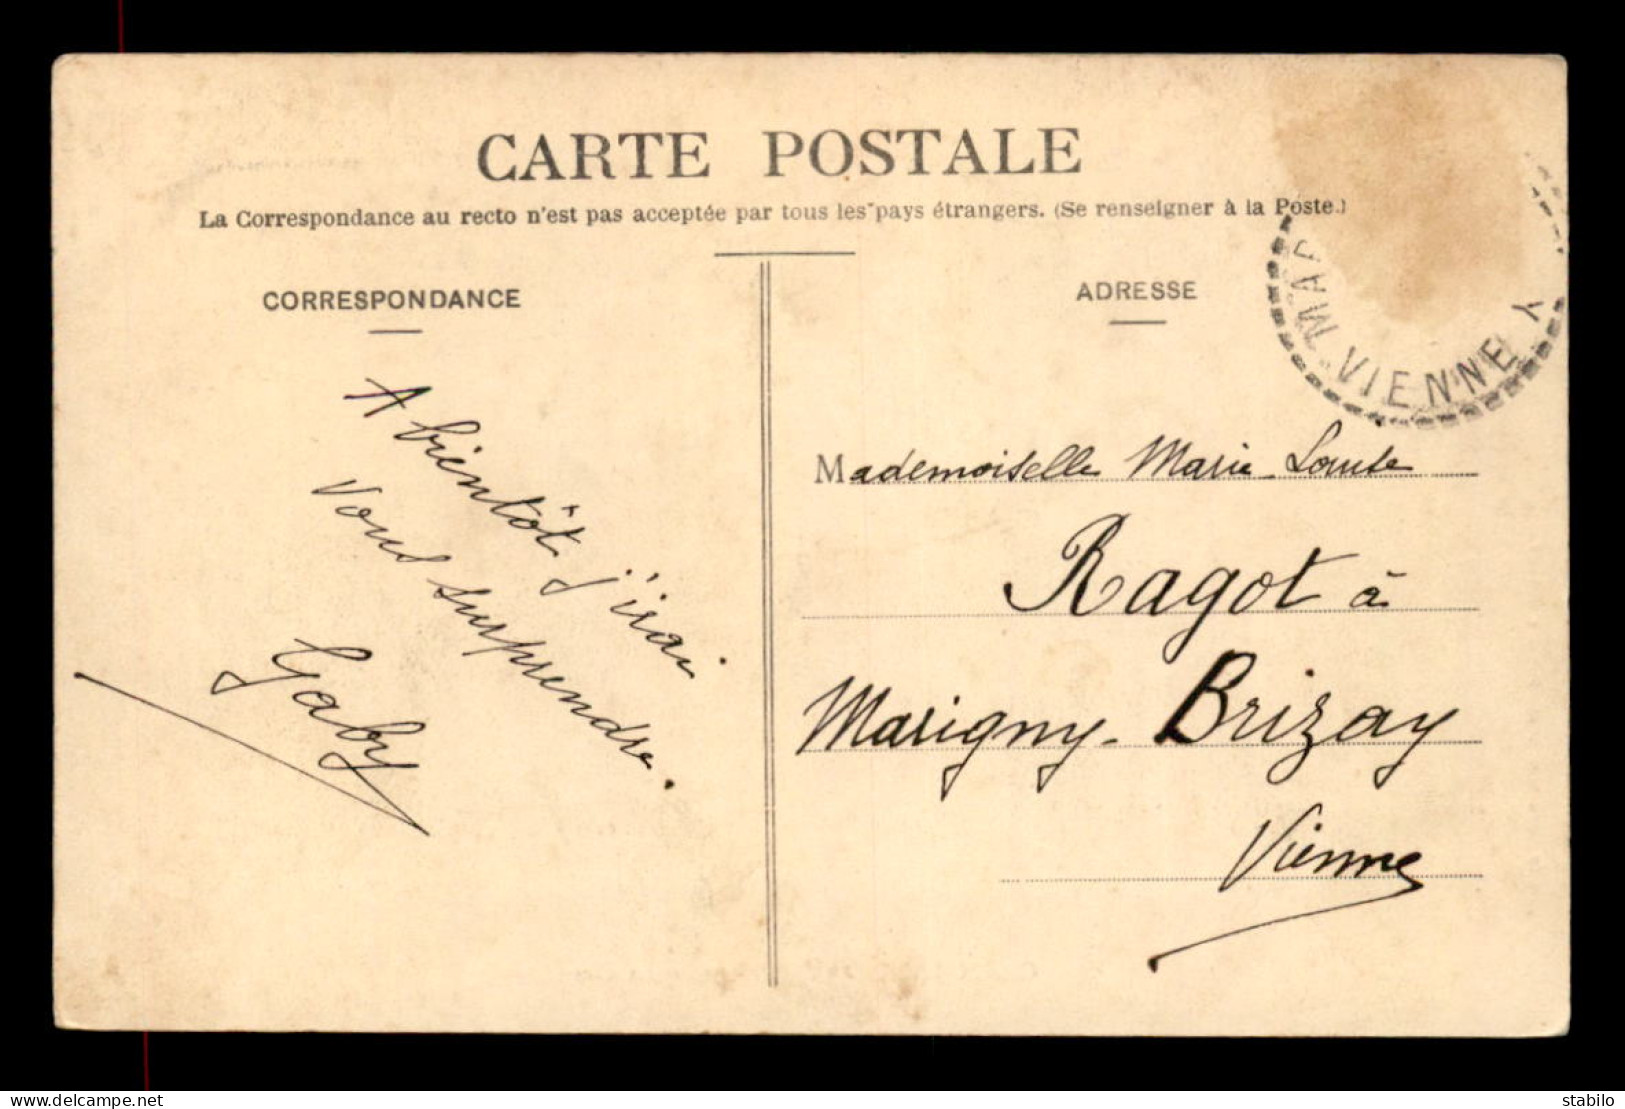 CARTE POSTALE
La Correspondance au recto n'est pas acceptée par tous les pays étrangers. (Se renseigner à la Poste.)
CORRESPONDANCE
A bientôt j'irai
vous surprendre.
Gaby
ADRESSE
Mademoiselle Marie Louise
Ragot à
Marigny-Brizay
Vienne
MAR Y
VIENNE
www.delcampe.net
stabilo